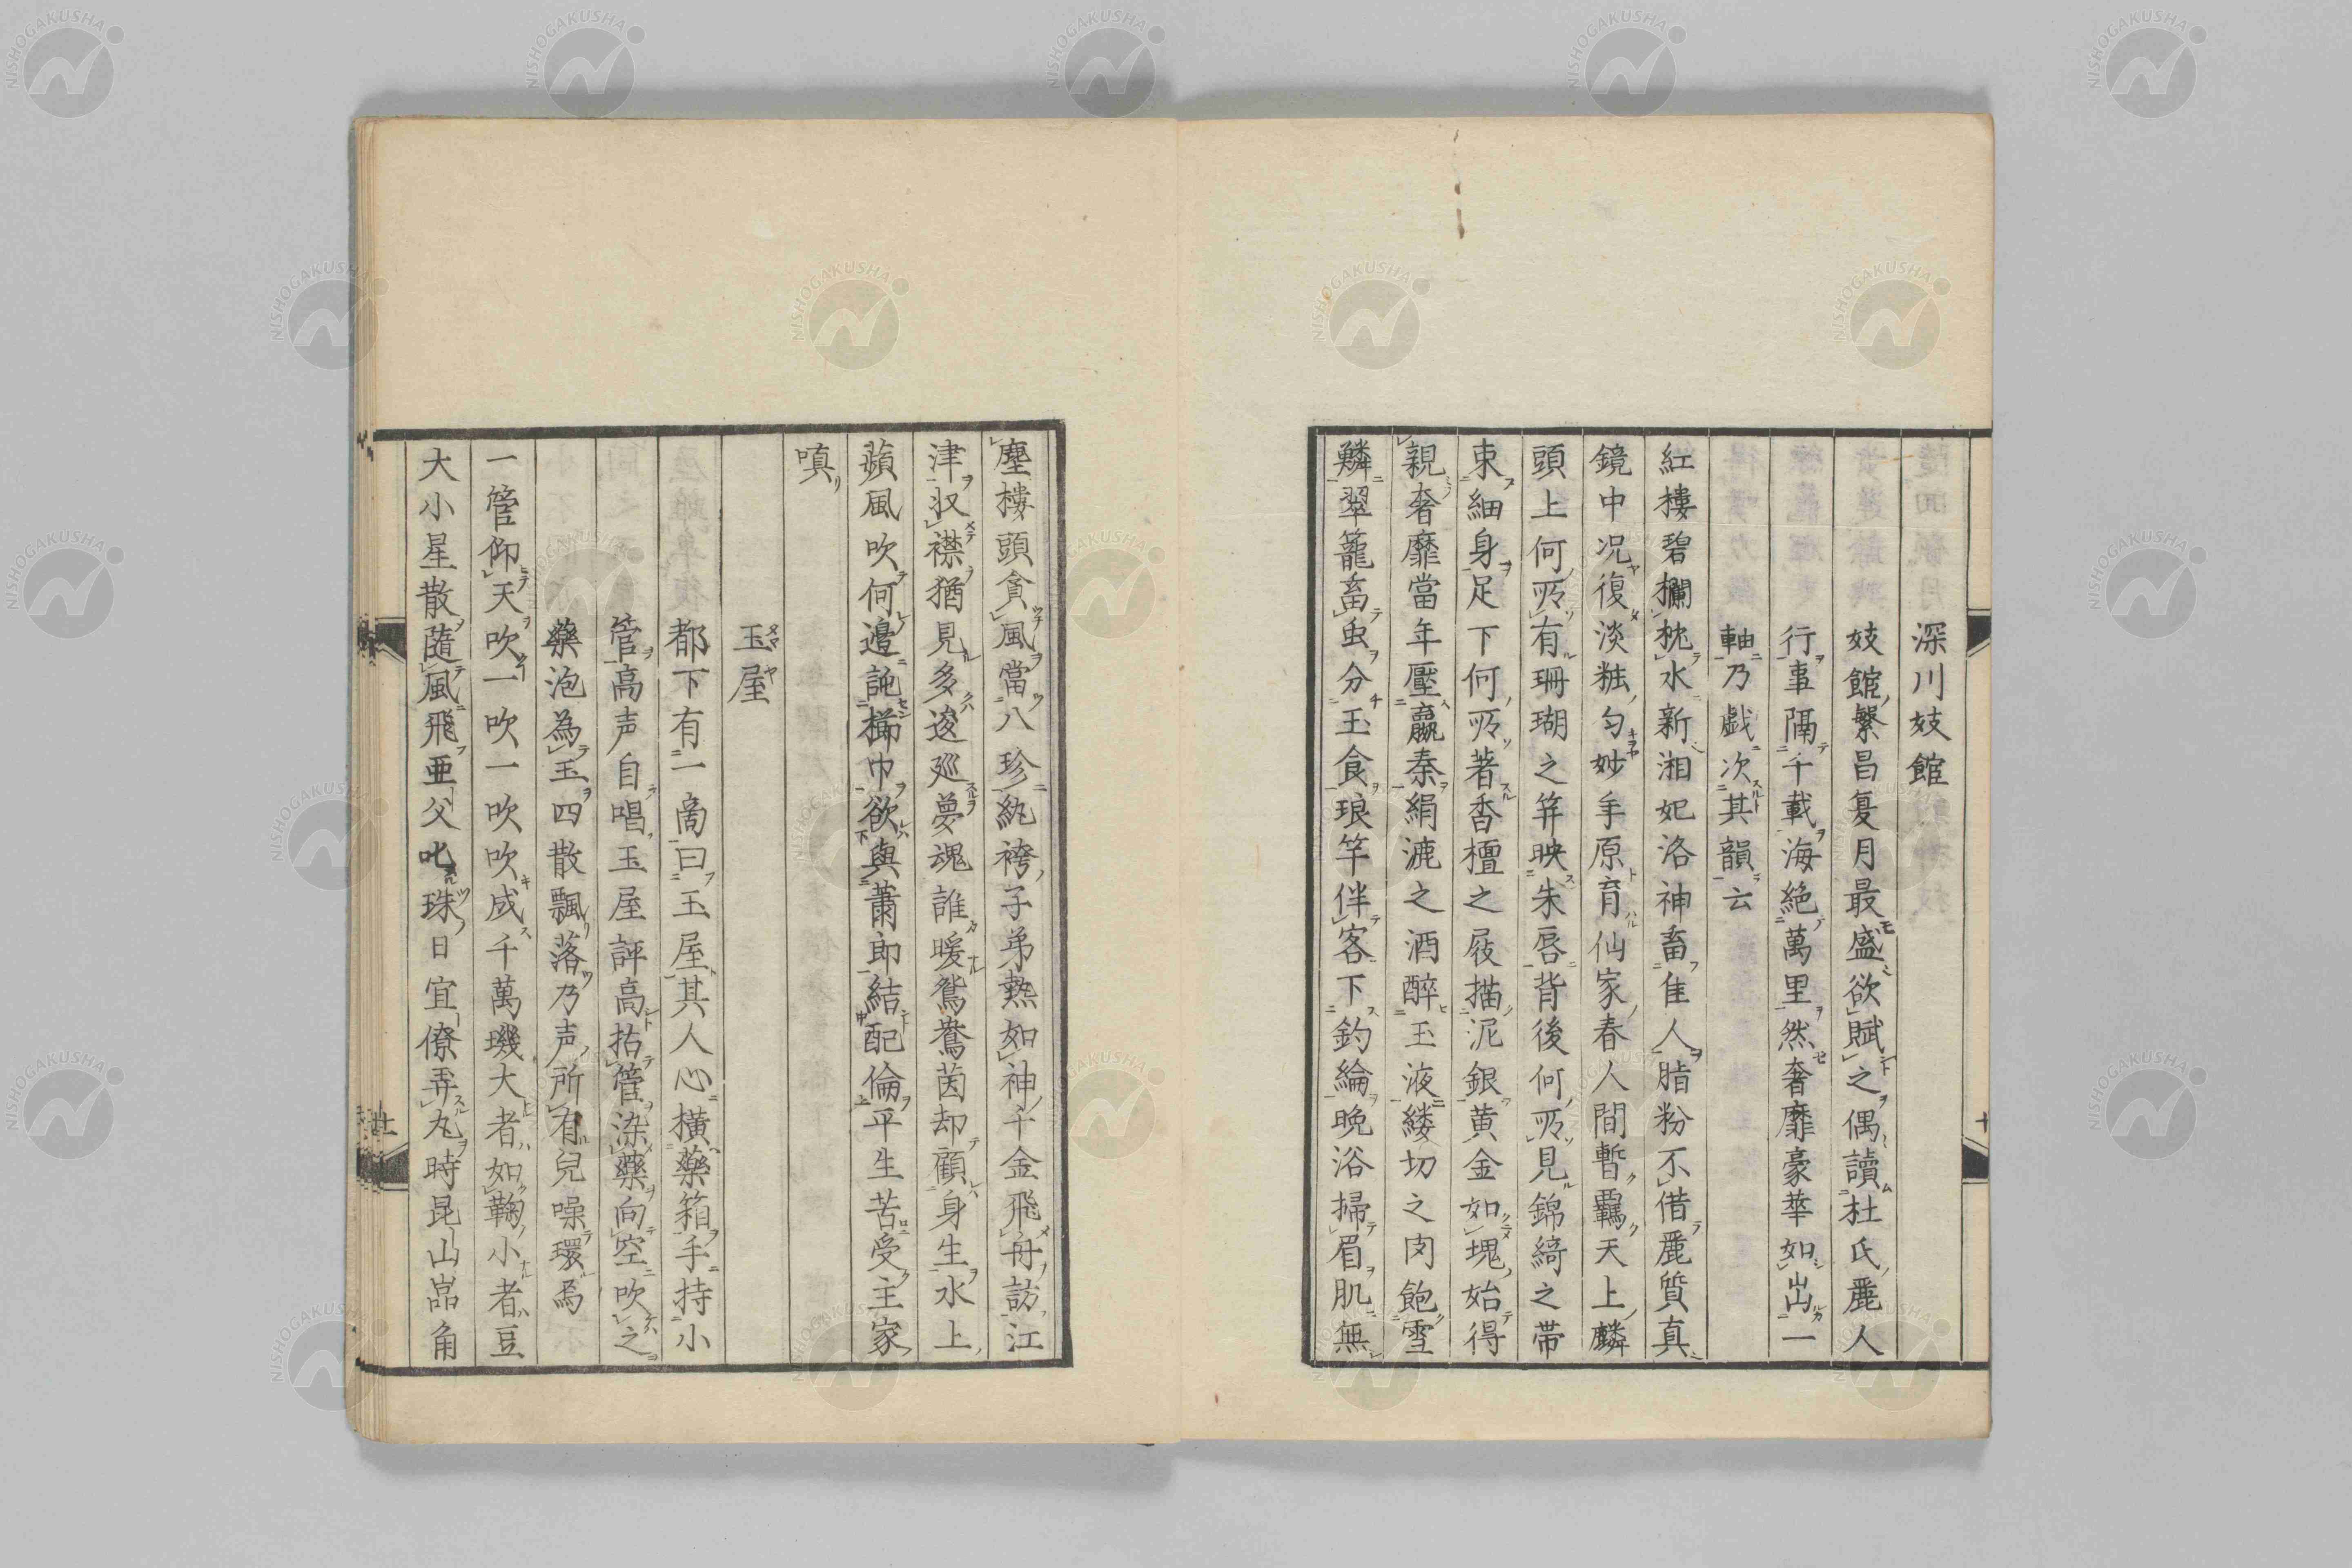 深川妓館
妓館繁昌夏月最盛欲賦之偶讀杜氏麗人
行事隔千載海絶萬里然奢靡豪華如出一
軸乃戯次其韻云
紅樓碧欄枕水新湘妃洛神畜佳人脂粉不借麗質真
鏡中况復淡粧勻妙手原育仙家春人間暫覊天上麟
頭上何所有珊瑚之笄映朱唇背後何所見錦綺之帯
束細身足下何所著香檀之屐描泥銀黄金如塊始得
親奢靡當年壓嬴秦絹漉之酒醉玉液縷切之肉飽雪
鱗翠籠畜虫分玉食琅竿伴客下釣綸晩浴掃眉肌無
塵樓頭貪風當八珍紈袴子弟熱如神千金飛舟訪江
津収襟猶見多逡巡夢魂誰暖鴛鴦茵却顧身生水上
蘋風吹何邉詑擲巾欲與蕭郎結配倫平生苦受主家
嗔
玉屋
都下有一啇曰玉屋其人心横藥箱手持小
管高声自唱玉屋評高拈管染藥向空吹之
藥泡為玉四散飄落乃声所有兒噪環焉
一管仰天吹一吹一吹吹成千萬璣大者如鞠小者豆
大小星散隨風飛亜父叱珠日宜僚弄丸時昆山品角
NISHOGAKUSHA